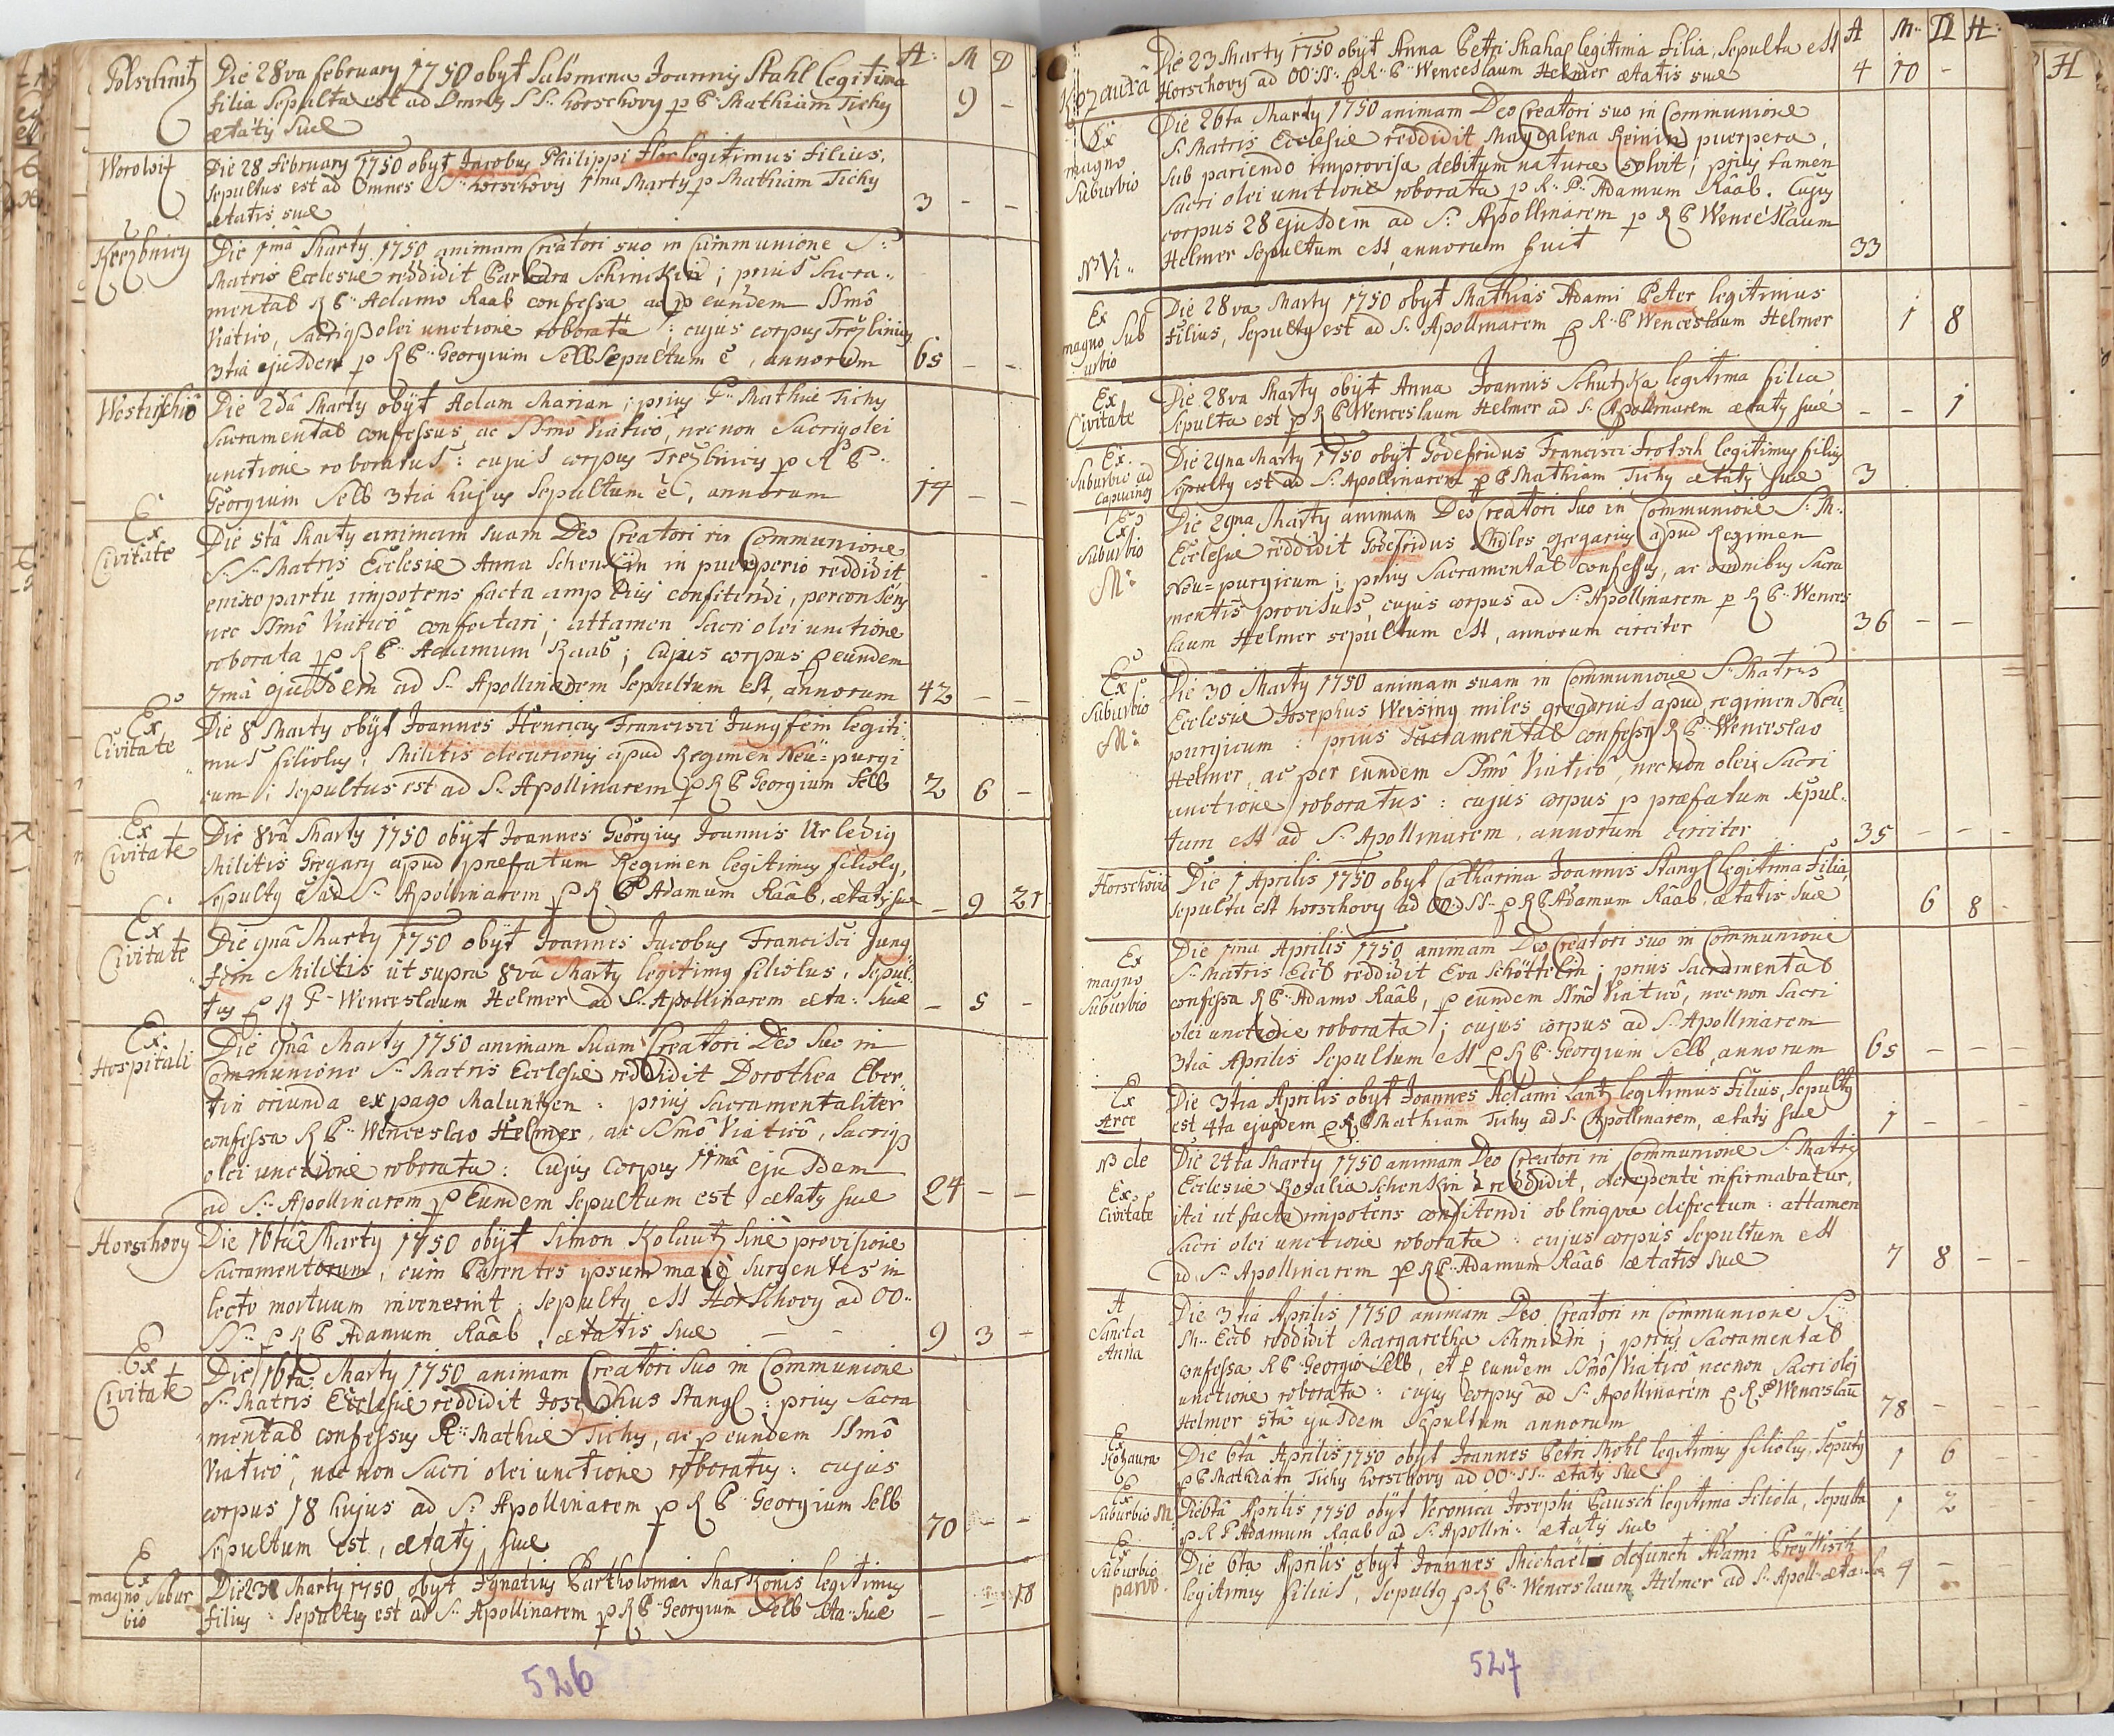 A: M D
Polschnitz Die 28va february 1750 obyt Salomena Joannis Stahl legitima
filia sepulta est ad Omnes SS: horschovy p P. Mathiam Tichy 9 –
ætatis suæ
Worowitz Die 28 february 1750 obyt Jacobus Philippi Flor legitimus filius,
sepultus est ad Omnes SS: horschovy 1ma Marty p Mathiam Tichy
ætatis suæ 3 – –
Die 1ma Marty 1750 animam Creatori suo in Communione S:
Matris Ecclesiæ reddidit Barbara ; prius Sacra=
mental R P Adamo Raab confessa ac p eundem SSmô
Viaticô, Sacriqß olei unctione roborata : cujus corpus
3tia ejusdem p R P Georgium Selb Sepultum ē, annorum 65 – –
Die 2dâ Marty obyt Adam Marian ; prius P. Mathiæ Tichy
Sacramental confessus, ac SSmô Viaticô, necnon Sacriq olei
unctione roboratus : cujus corpus p R P
Georgium Selb 3tia hujus Sepultum ē, annorum – –
Ex
Civitate Die 5tâ Marty animam suam Deo Creatori in Communione
S: Matris Ecclesiæ Anna in puerperio reddidit,
enixo partu impotens facta amplius confitendi,
nec SSmô Viaticô ; attamen Sacri olei unctione
roborata p R P Adamum Raab ; Cujus corpus p eundem
7mâ ejusdem ad S: Apollinarem Sepultum est, annorum 42 – –
Ex
Civitate Die 8 Marty obyt Joannes Henricus Francisci Jungfein legiti=
mus filiolus, Militis decurionis apud Regimen Neü=purgi
cum ; Sepultus est ad S: Apollinarem p R P Georgium Selb 2 6 –
Ex
Civitate Die 8vâ Marty 1750 obyt Joannes Georgius Joannis Urledig
Militis Gregary apud præfatum Regimen legitimus filiolq,
Sepultq ē ad S: Apollinarem p R P Adamum Raab, ætatis suæ – 9 21
Ex
Civitate Die 9nâ Marty 1750 obyt Joannes Jacobus Francisci Jung
fein Militis ut supra 8vâ Marty legitimq filiolus, Sepul=
tus p R P Wenceslaum Helmer ad S: Apollinarem æta: suæ – 5 –
Ex
Hospitali Die 9nâ Marty 1750 animam suam Creatori Deo suo in
Communione S: Matris Ecclesiæ reddidit Dorothea Eber=
tin oriunda ex pago Maluntzen : prius sacramentaliter
confessa R P Wenceslao Helmer, ac SSmô Viaticô, Sacriqß
olei unctione roborata : Cujus Corpus 11mâ ejusdem
ad S: Apollinarem p Eundem Sepultum est ætatis suæ 24 – –
Horschovy Die 16tâ Marty 1750 obyt Simon Kolautz sine provisione
Sacramentorum, cum Parentes ipsum mane Surgentes in
lecto mortuum invenerint ; Sepultq est Horschovy ad OO
SS: p R P Adamum Raab, ætatis suæ – – 9 3 –
Ex
Civitate Die 16tâ Marty 1750 animam Creatori suo in Communione
S: Matris Ecclesiæ reddidit Josephus Stangl : prius Sacra
mental confessus P: Mathiæ Tichy, ac p eundem SSmô
Viaticô, necnon Sacri olei unctione roboratus : cujus
corpus 18 hujus ad S: Apollinarem p R P Georgium Selb
Sepultum est, ætatis suæ 70 – –
Ex
magno Subur
bio Die 23 Marty 1750 obyt Ignatius Bartholomæi Markonis legitimus
filius : Sepultus est ad S: Apollinarem p R P Georgium Selb æta: suæ – 18
526
A M D H
Die 23 Marty 1750 obyt Anna Petri legitima filia, Sepulta est
Horschovy ad OO SS: p R P Wenceslaum Helmer ætatis suæ 4 10 –
Ex
magno
Suburbio Die 26ta Marty 1750 animam Deo Creatori suo in Communione
S: Matris Ecclesiæ reddidit Magdalena Reinin puerpera,
sub pariendo improvisa debitum naturæ solvit ; prius tamen
Sacri olei unctione roborata p R P Adamum Raab. Cujus
corpus 28 ejusdem ad S: Apollinarem p R P Wenceslaum
Helmer Sepultum est annorum fuit 33
Ex
magno Sub
urbio Die 28va Marty 1750 obyt Mathias Adami Peter legitimus
filius, Sepultq est ad S: Apollinarem p R P Wenceslaum Helmer 1 8
Ex
Civitate Die 28va Marty obyt Anna Joannis Schutzka legitima filia,
Sepulta est p R P Wenceslaum Helmer ad S: Apollinarem ætatis suæ – – 1
Ex
Suburbio ad
Capucinos Die 29na Marty 1750 obyt Godefridus Francisci Trotsch legitimus filius
Sepultq est ad S: Apollinarem p P Mathiam Tichy ætatis suæ 3
Ex
Suburbio
M: Die 29na Marty animam Deo Creatori suo in Communione S: M:
Ecclesiæ reddidit Godefridus Miles gregarius apud Regimen
Neu=purgicum ; prius Sacramental confessus, ac omnibus Sacra
mentis provisus, cujus corpus ad S: Apollinarem p R P Wences
laum Helmer sepultum est, annorum circiter 36 – –
Ex
Suburbio
M: Die 30 Marty 1750 animam suam in Communione S: Matris
Ecclesiæ Josephus Weising miles gregarius apud regimen Neu=
purgicum : prius Sacramental confessq R P Wenceslao
Helmer, ac per eundem SSmô Viaticô, necnon olei Sacri
unctione roboratus : cujus corpus p præfatum Sepul=
tum est ad S: Apollinarem, annorum circiter 35 – – –
Die 1 Aprilis 1750 obyt Catharina Joannis Stangl legitima filia,
Sepulta est horschovy ad OO SS: p R P Adamum Raab, ætatis suæ 6 8
Ex
magno
Suburbio Die 1ma Aprilis 1750 animam Deo Creatori suo in Communione
S: Matris Eccl reddidit Eva Schöttelin ; prius Sacramental
confessa R P Adamo Raab, p eundem SSmô Viaticô, necnon Sacri
olei unctione roborata ; cujus corpus ad S: Apollinarem
3tia Aprilis Sepultum est p R P Georgium Selb, annorum 65 – – –
Ex
Arce Die 3tia Aprilis obyt Joannes Adami Lantz legitimus filius, Sepultq
est 4ta ejusdem p R P Mathiam Tichy ad S: Apollinarem, ætatis suæ 1 – –
Nb de
Ex
Civitate Die 24ta Marty 1750 animam Deo Creatori in Communione S: Matris
Ecclesiæ Rosalia Schenkin reddidit, derepente infirmabatur,
ita ut facta impotens confitendi ob linguæ defectum : attamen
Sacri olei unctione roborata : cujus corpus sepultum est
ad S: Apollinarem p R P Adamum Raab ætatis suæ 7 8 – –
A
Sancta
Anna Die 3tia Aprilis 1750 animam Deo Creatori in Communione S:
M: Eccl reddidit Margaretha Schmidin ; prius Sacramental
confessa R P Georgio Selb, et p eundem SSmô Viaticô, necnon Sacri olei
unctione roborata : cujus corpus ad S: Apollinarem p R P Wenceslau
Helmer 5tâ ejusdem Sepultum annorum 78 – –
Ex
Kozaura Die 6ta Aprilis 1750 obyt Joannes Petri Mohl legitimus filiolus, Sepultq
p P Mathiam Tichy horschovy ad OO SS: ætatis suæ 1 6
Ex
Suburbio M: Die 6tâ Aprilis 1750 obyt Veronica Josephi Bausch legitima filiola, Sepulta
p R P Adamum Raab ad S: Apollin: ætatis suæ 1 2
Ex
Suburbio
parvo. Die 6ta Aprilis obyt Joannes Michael defuncti Adami
legitimus filius, Sepultq p R P Wenceslaum Helmer ad S: Apoll: æta: –
527
H